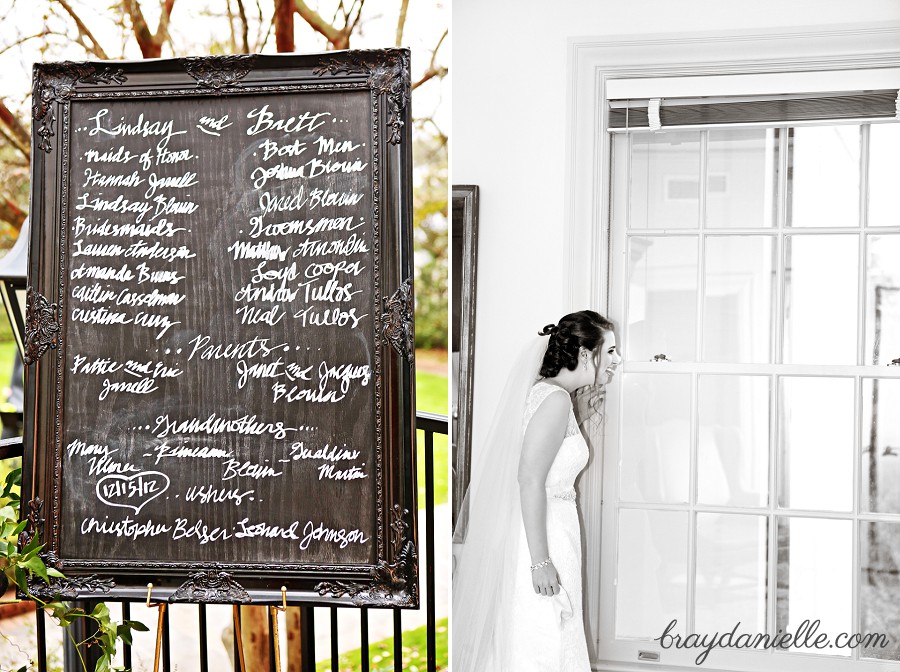 Lindsay and Brett
Maids of Honor
Hannah Jarrell
Lindsay Blouin
Bridesmaids
Lauren Anderson
Amanda Burns
Caitlin Casselman
Cristina Cruz
Best Men
Joshua Blouin
Jared Blouin
Groomsmen
Loyd Cooper
Andrew Tullos
Neal Tullos
Parents
Pattie and Eric
Jarrell
Janet and Jacques
Blouin
Grandmothers
Mary
Ulmer
Blouin
Geraldine
Martin
12/15/12
Ushers
Christopher Belser
Leonard Johnson
braydanielle.com